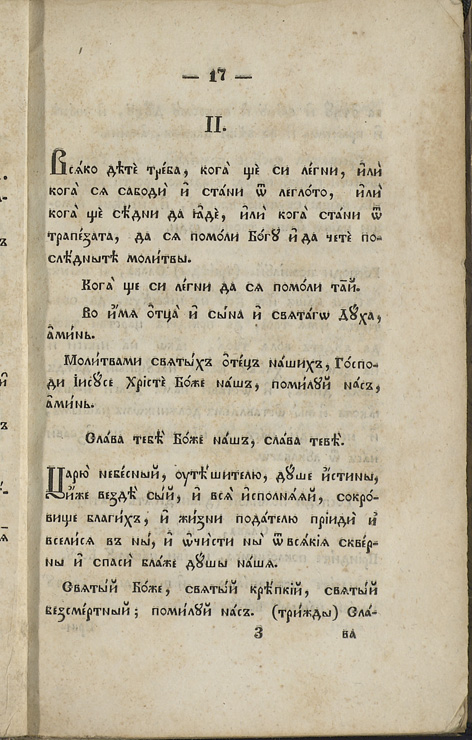 — 17 —
II.
Всѧко дѣтѐ трѐба, кога̀ ще си лѐгни, и҆лѝ
кога̀ сѧ сабодѝ и҆ ста́ни ѿ легло́то, и҆лѝ
кога̀ ще сѣ́дни да ꙗ҆дѐ, и҆лѝ кога̀ ста́ни ѿ
трапе́зата, да сѧ помо́ли Бо́гꙋ и҆ да чете по-
слѣ́днытѣ моли́твы.
Кога̀ ще си лѐгни да сѧ помо́ли та́й.
Во и҆́мѧ ѻ҆тца̀ и҆ сы́на и҆ свѧта́гѡ Дꙋ́ха,
а҆ми́нь.
Моли́твами свѧты́хъ ѻ҆те́цъ на́шихъ, Го́спо-
ди І҆исꙋ́се Хрїстѐ Бо́же на́шъ, поми́лꙋй на́съ,
а҆ми́нь.
Сла́ва тебѣ̀ Бо́же на́шъ, сла́ва тебѣ̀.
Царю̀ небе́сный, ѹ҆тѣ́шителю, дꙋ́ше и҆́стины,
и҆́же вездѣ̀ сы́й, и҆ всѧ̀ и҆сполнѧ́ѧй, сокро́-
вище благи́хъ, и҆ жи́зни пода́телю прїидѝ и҆
всели́сѧ въ ны̀, и҆ ѡ҆чи́сти ны̀ ѿ всѧ́кїѧ сквѣ́р-
ны и҆ спасѝ бла́же дꙋ́шы на́шѧ.
Свѧты́й Бо́же, свѧты́й крѣ́пкїй, свѧты́й
безсме́ртный; поми́лꙋй на́съ. (три́жды) Сла́-
3 ва